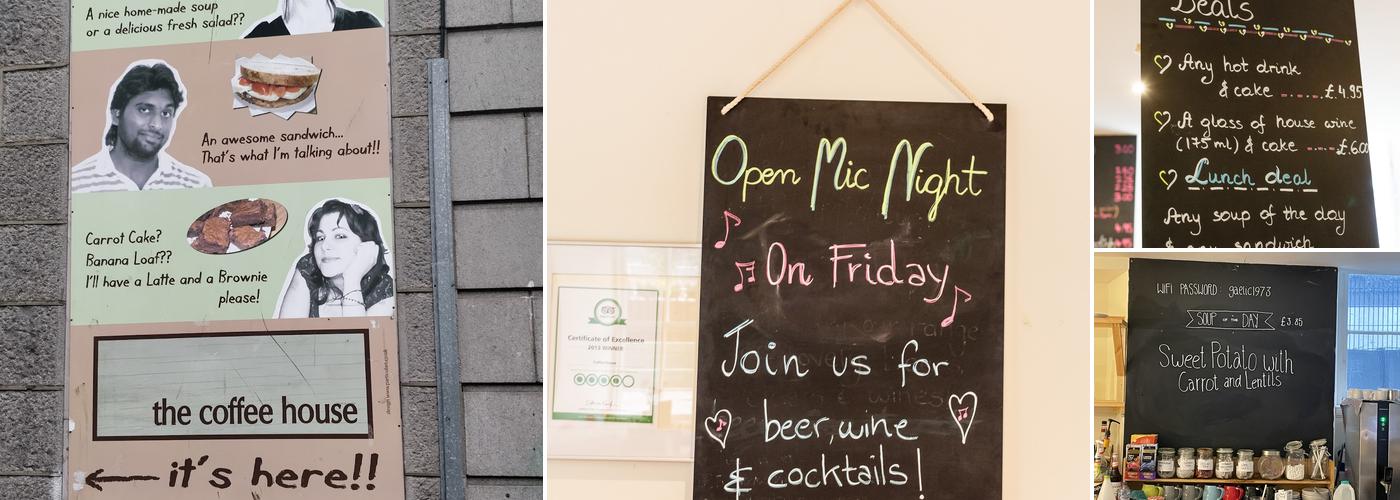 A nice home-made soup
or a delicious fresh salad??
An awesome sandwich...
That's what I'm talking about!!
Carrot Cake?
Banana Loaf??
I'll have a Latte and a Brownie
please!
the coffee house
it's here!!
Certificate of Excellence
2013 WINNER
Open Mic Night
On Friday
Join us for
beer, wine
& cocktails!
Deals
Any hot drink
& cake ......£4.95
A glass of house wine
(175ml) & cake ----£6.00
Lunch deal
Any soup of the day
& any sandwich
WIFI PASSWORD: gaelic1973
SOUP OF THE DAY £3.85
Sweet Potato with
Carrot and Lentils